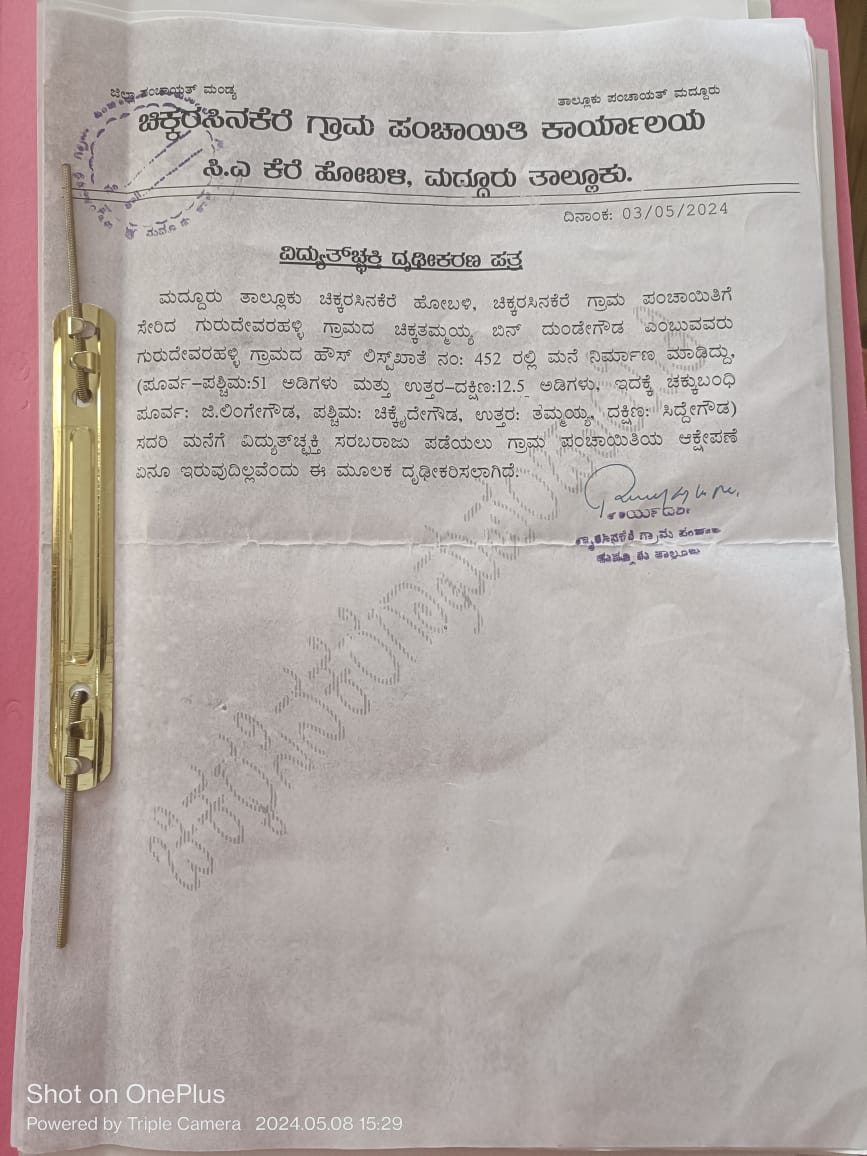 ಜಿಲ್ಲಾ ಪಂಚಾಯತ್ ಮಂಡ್ಯ
ತಾಲ್ಲೂಕು ಪಂಚಾಯತ್ ಮದ್ದೂರು
ಚಿಕ್ಕರಸಿನಕೆರೆ ಗ್ರಾಮ ಪಂಚಾಯಿತಿ ಕಾರ್ಯಾಲಯ
ಸಿ.ಎ ಕೆರೆ ಹೋಬಳಿ, ಮದ್ದೂರು ತಾಲ್ಲೂಕು.
ದಿನಾಂಕ: 03/05/2024
ವಿದ್ಯುತ್‌ಚ್ಛಕ್ತಿ ದೃಢೀಕರಣ ಪತ್ರ
ಮದ್ದೂರು ತಾಲ್ಲೂಕು ಚಿಕ್ಕರಸಿನಕೆರೆ ಹೋಬಳಿ, ಚಿಕ್ಕರಸಿನಕೆರೆ ಗ್ರಾಮ ಪಂಚಾಯಿತಿಗೆ
ಸೇರಿದ ಗುರುದೇವರಹಳ್ಳಿ ಗ್ರಾಮದ ಚಿಕ್ಕತಮ್ಮಯ್ಯ ಬಿನ್ ದುಂಡೇಗೌಡ ಎಂಬುವವರು
ಗುರುದೇವರಹಳ್ಳಿ ಗ್ರಾಮದ ಹೌಸ್ ಲಿಸ್ಟ್‌ಖಾತೆ ನಂ: 452 ರಲ್ಲಿ ಮನೆ ನಿರ್ಮಾಣ ಮಾಡಿದ್ದು,
(ಪೂರ್ವ-ಪಶ್ಚಿಮ:51 ಅಡಿಗಳು ಮತ್ತು ಉತ್ತರ-ದಕ್ಷಿಣ:12.5 ಅಡಿಗಳು, ಇದಕ್ಕೆ ಚಕ್ಕುಬಂಧಿ
ಪೂರ್ವ: ಜಿ.ಲಿಂಗೇಗೌಡ, ಪಶ್ಚಿಮ: ಚಿಕ್ಕೈದೇಗೌಡ, ಉತ್ತರ: ತಮ್ಮಯ್ಯ, ದಕ್ಷಿಣ: ಸಿದ್ದೇಗೌಡ)
ಸದರಿ ಮನೆಗೆ ವಿದ್ಯುತ್‌ಚ್ಛಕ್ತಿ ಸರಬರಾಜು ಪಡೆಯಲು ಗ್ರಾಮ ಪಂಚಾಯಿತಿಯ ಆಕ್ಷೇಪಣೆ
ಏನೂ ಇರುವುದಿಲ್ಲವೆಂದು ಈ ಮೂಲಕ ದೃಢೀಕರಿಸಲಾಗಿದೆ.
ಗ್ರಾಮ
Shot on OnePlus
Powered by Triple Camera 2024.05.08 15:29